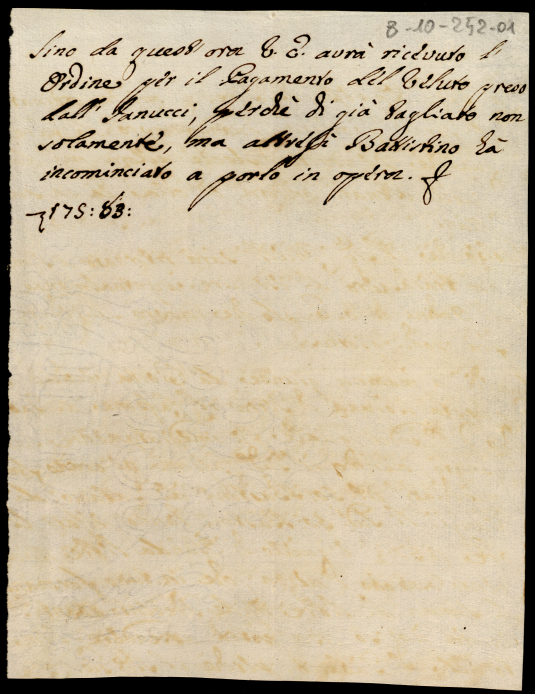 8-10-252-01
sino da quest'ora V. E. avrà ricevuto l'
Ordine per il Pagamento del Veluto preso
dall' Janucci, perchè di già tagliato non
solamente, ma altresì Battistino hà
incominciato a porlo in opera.
175:83: